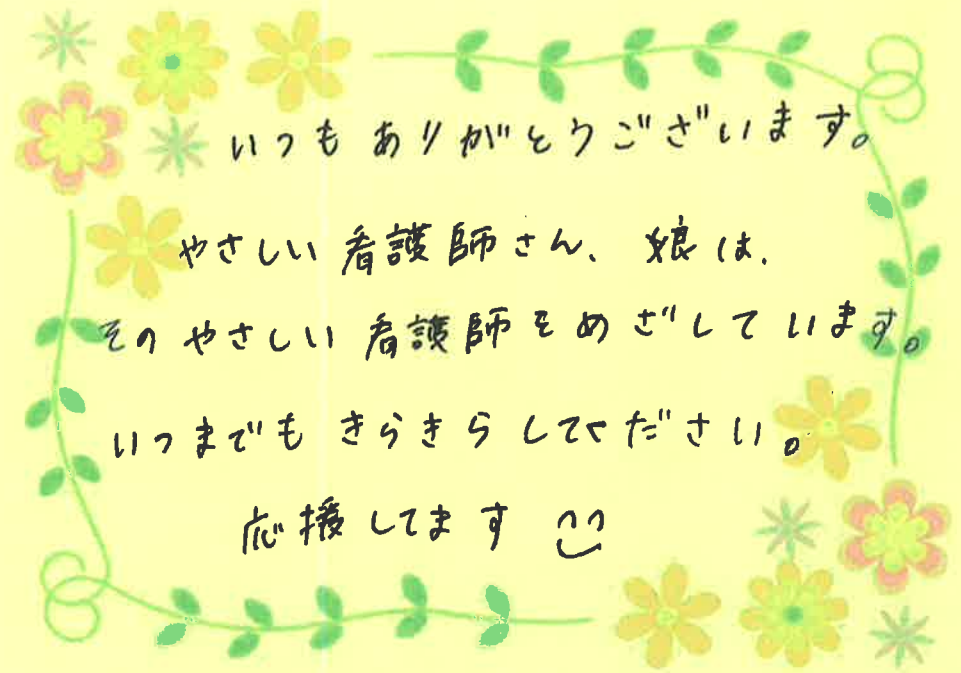 いつもありがとうございます。
やさしい看護師さん、娘は、
そのやさしい看護師をめざしています。
いつまでもきらきらしてください。
応援してます